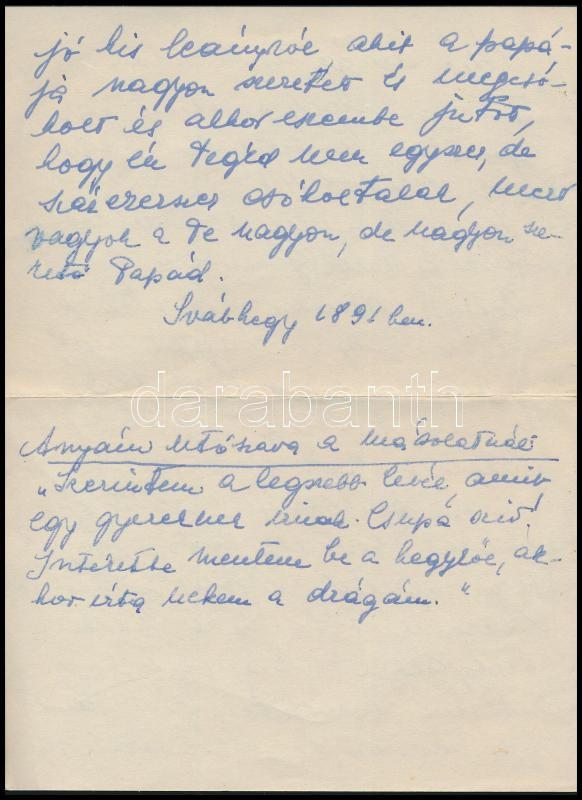 jó kis leányról akit a papá-
ja nagyon szeretet és megcsó-
kolt és akkor eszembe jutot,
hogy én Tegéd nem egyszer, de
százezerszer csókoltalak, mert
vagyok a Te nagyon, de nagyon sze-
rető Papád.
Svábhegy 1891 ben.
darabanth
Anyám utószava a másolatnál:
„Szerintem a legszebb levél, amit
egy gyereknek írnak. Csupa szív!
mentem be a hegyről, ak-
kor írta nekem a drágám."